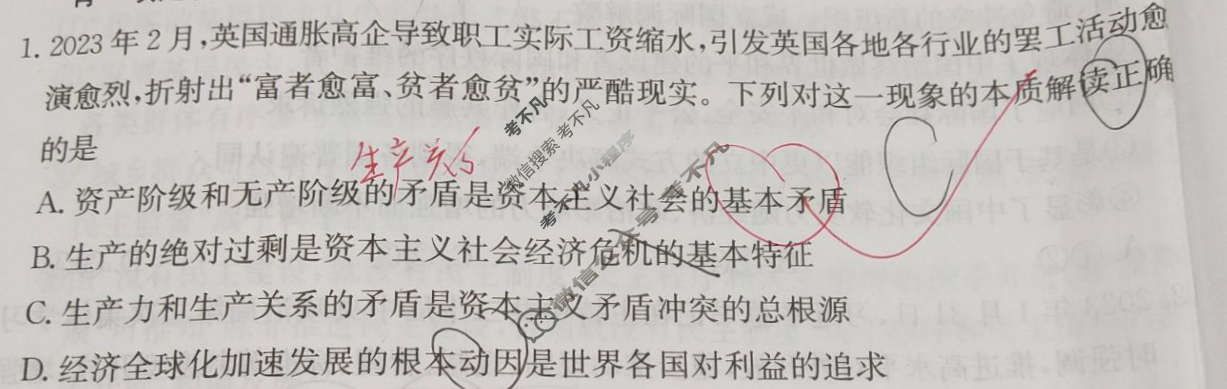 1. 2023年2月,英国通胀高企导致职工实际工资缩水,引发英国各地各行业的罢工活动愈
演愈烈,折射出“富者愈富、贫者愈贫”的严酷现实。下列对这一现象的本质解读正确
的是
生产
A. 资产阶级和无产阶级的矛盾是资本主义社会的基本矛盾
B. 生产的绝对过剩是资本主义社会经济危机的基本特征
C. 生产力和生产关系的矛盾是资本主义矛盾冲突的总根源
D. 经济全球化加速发展的根本动因是世界各国对利益的追求
考不凡
微信搜索 考不凡
考不凡小程序
微信公众号 考不凡